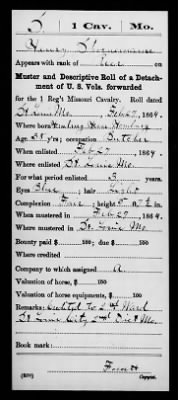 S. | 1 Cav. | Mo.
Henry
Appears with rank of
Muster and Descriptive Roll of a Detach-
ment of U. S. Vols. forwarded
for the 1 Reg't Missouri Cavalry. Roll dated
St. Louis Mo. Feb 27, 1864.
Where born
Age 31 y'rs; occupation Butcher
When enlisted Feb 27, 1864.
Where enlisted St. Louis Mo.
For what period enlisted 3 years.
Eyes Blue; hair Light
Complexion; height 5 ft. 7½ in.
When mustered in Feb 27, 1864.
Where mustered in St. Louis Mo.
Bounty paid $ 100; due $ 100
Where credited
Company to which assigned A.
Valuation of horse, $ 100
Valuation of horse equipments, $ 100
Remarks: Ward
St. Louis City 2nd Dist Mo.
Book mark:
Copyist.